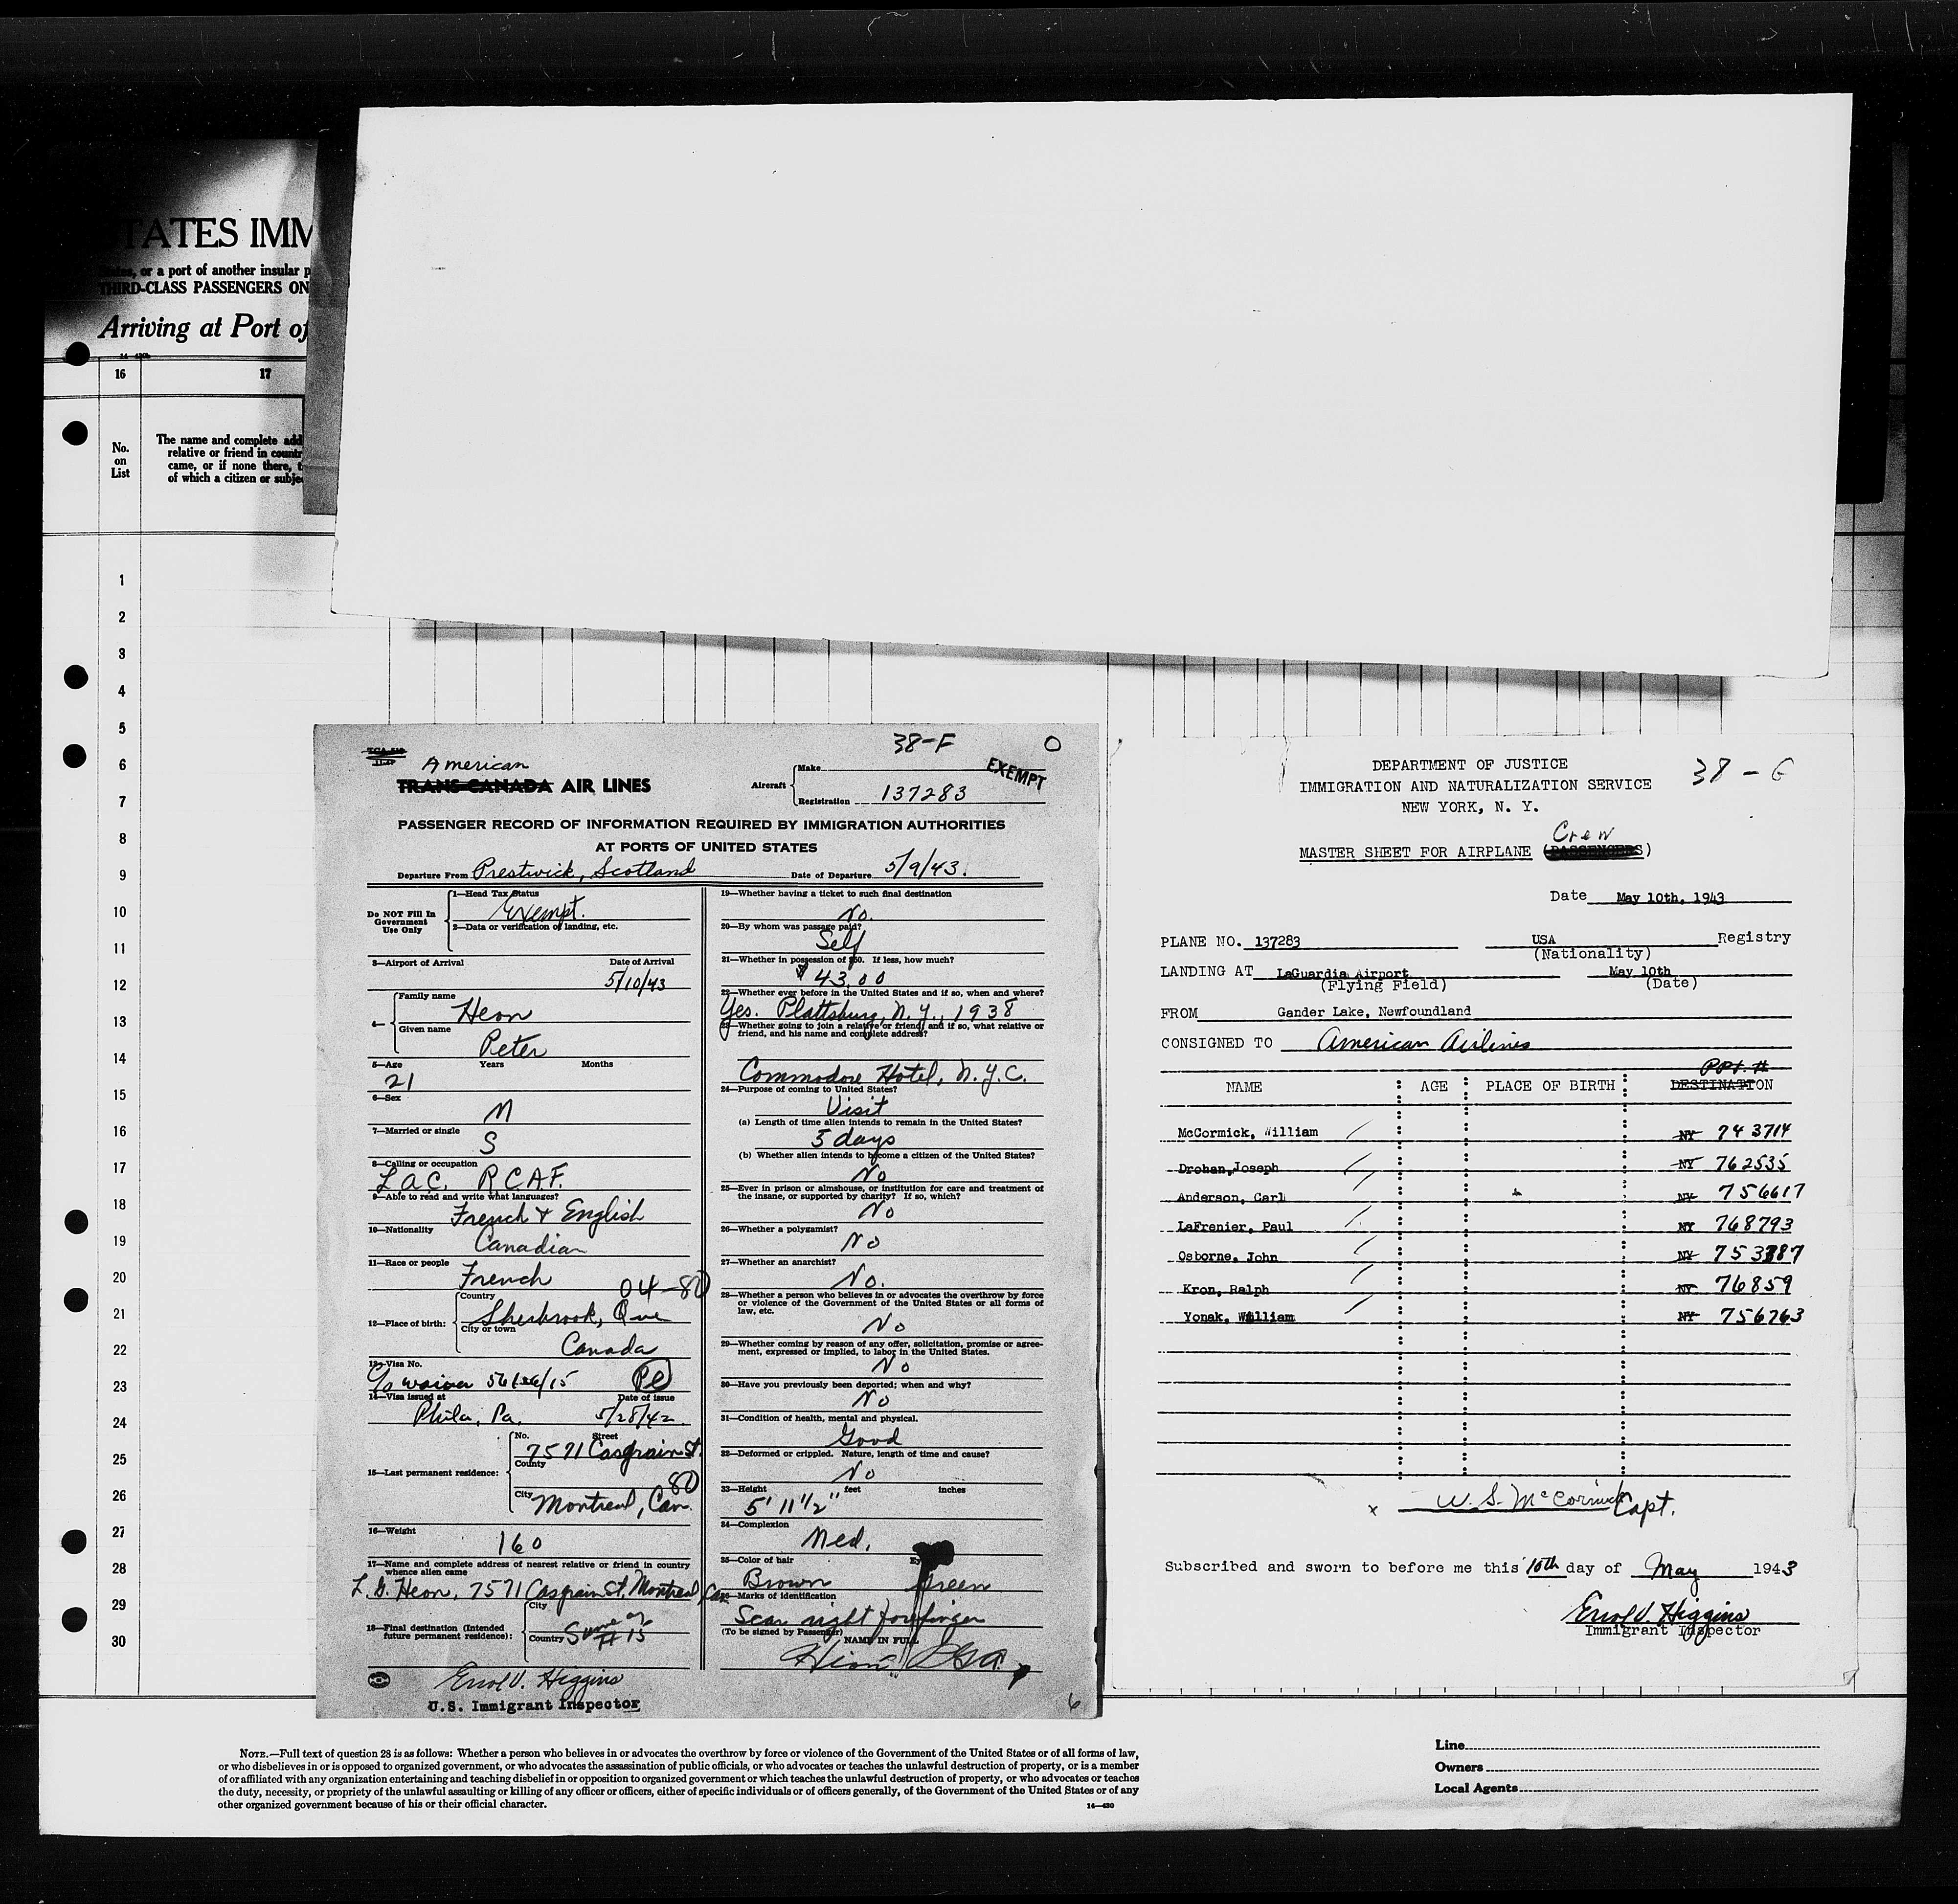 TATES IMM
or a port of another insular p
THIRD-CLASS PASSENGERS ON
Arriving at Port of
16 17
No. on List
The name and complete add
relative or friend in countr
came, or if none there, t
of which a citizen or subje
1
2
3
4
5
6
7
8
9
10
11
12
13
14
15
16
17
18
19
20
21
22
23
24
25
26
27
28
29
30
38-F O
American
TRANS-CANADA AIR LINES
Aircraft
Make
EXEMPT
Registration 137283
PASSENGER RECORD OF INFORMATION REQUIRED BY IMMIGRATION AUTHORITIES
AT PORTS OF UNITED STATES
Departure From Prestwick, Scotland Date of Departure 5/9/43.
Do NOT Fill In
Government
Use Only
1—Head Tax Status
Exempt.
2—Data or verification of landing, etc.
3—Airport of Arrival Date of Arrival
5/10/43
4—
Family name
Heon
Given name
Peter
5—Age Years Months
21
6—Sex
M
7—Married or single
S
8—Calling or occupation
L.A.C. R.C.A.F.
9—Able to read and write what languages?
French & English
10—Nationality
Canadian
11—Race or people
French 04-80
12—Place of birth:
Country
Sherbrook, Que
City or town
Canada
13—Visa No.
waiver 56/36/15
14—Visa issued at Date of issue
Phila, Pa. 5/28/42
15—Last permanent residence:
No. Street
7571 Casgrain St.
County
80
City Montreal, Can.
16—Weight
160
17—Name and complete address of nearest relative or friend in country
whence alien came
L. G. Heon, 7571 Casgrain St. Montreal, Can
18—Final destination (Intended
future permanent residence):
City
Country Same as # 15
Errol V. Higgins
U.S. Immigrant Inspector
19—Whether having a ticket to such final destination
No.
20—By whom was passage paid?
Self
21—Whether in possession of $50. If less, how much?
$43.00
22—Whether ever before in the United States and if so, when and where?
Yes. Plattsburg, N.Y., 1938
23—Whether going to join a relative or friend, and if so, what relative or
friend, and his name and complete address?
Commodore Hotel, N.Y.C.
24—Purpose of coming to United States?
Visit
(a) Length of time alien intends to remain in the United States?
3 days
(b) Whether alien intends to become a citizen of the United States?
No
25—Ever in prison or almshouse, or institution for care and treatment of
the insane, or supported by charity? If so, which?
No
26—Whether a polygamist?
No
27—Whether an anarchist?
No.
28—Whether a person who believes in or advocates the overthrow by force
or violence of the Government of the United States or all forms of
law, etc.
No
29—Whether coming by reason of any offer, solicitation, promise or agree-
ment, expressed or implied, to labor in the United States.
No
30—Have you previously been deported; when and why?
No
31—Condition of health, mental and physical.
Good
32—Deformed or crippled. Nature, length of time and cause?
No
33—Height feet inches
5' 11 1/2"
34—Complexion
Med.
35—Color of hair
Brown Green
Marks of identification
Scar right forefinger
(To be signed by Passenger) NAME IN FULL
6
DEPARTMENT OF JUSTICE
IMMIGRATION AND NATURALIZATION SERVICE
NEW YORK, N. Y.
38-G
Crew
MASTER SHEET FOR AIRPLANE (PASSENGERS)
Date May 10th, 1943
PLANE NO. 137283 USA Registry
(Nationality)
LANDING AT LaGuardia Airport May 10th
(Flying Field) (Date)
FROM Gander Lake, Newfoundland
CONSIGNED TO American Airlines
PPT. #
NAME AGE PLACE OF BIRTH DESTINATION
McCormick, William NY 743714
Drohan, Joseph NY 762535
Anderson, Carl NY 756617
LaFrenier, Paul NY 768793
Osborne, John NY 753787
Kron, Ralph NY 76859
Yonak, William NY 756763
x W. S. McCormick Capt.
Subscribed and sworn to before me this 10th day of May 1943
Errol V. Higgins
Immigrant Inspector
NOTE.—Full text of question 28 is as follows: Whether a person who believes in or advocates the overthrow by force or violence of the Government of the United States or of all forms of law,
or who disbelieves in or is opposed to organized government, or who advocates the assassination of public officials, or who advocates or teaches the unlawful destruction of property, or is a member
of or affiliated with any organization entertaining and teaching disbelief in or opposition to organized government or which teaches the unlawful destruction of property, or who advocates or teaches
the duty, necessity, or propriety of the unlawful assaulting or killing of any officer or officers, either of specific individuals or of officers generally, of the Government of the United States or of any
other organized government because of his or their official character.
14—430
Line
Owners
Local Agents